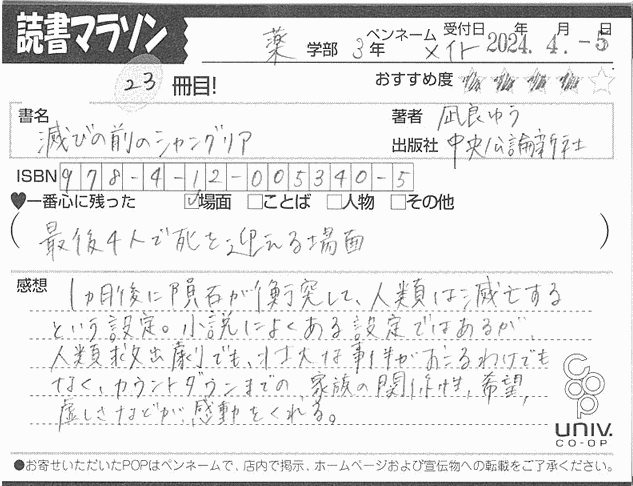 読書マラソン
薬 学部 3年 ペンネーム メイト 受付日 2024年 4月 -5日
23 冊目!
おすすめ度 ★★★★☆
書名 滅びの前のシャングリア
著者 凪良ゆう
出版社 中央公論新社
ISBN 978-4-12-005340-5
♥一番心に残った ☑場面 □ことば □人物 □その他
(最後4人で死を迎える場面)
感想 1ヵ月後に隕石が衝突して、人類は滅亡する
という設定。小説によくある設定ではあるが、
人類救出劇でも、壮大な事件がおこるわけでも
なく、カウントダウンまでの、家族の関係性、希望、
虚しさなどが感動をくれる。
coop
UNIV.
CO-OP
●お寄せいただいたPOPはペンネームで、店内で掲示、ホームページおよび宣伝物への転載をご了承ください。